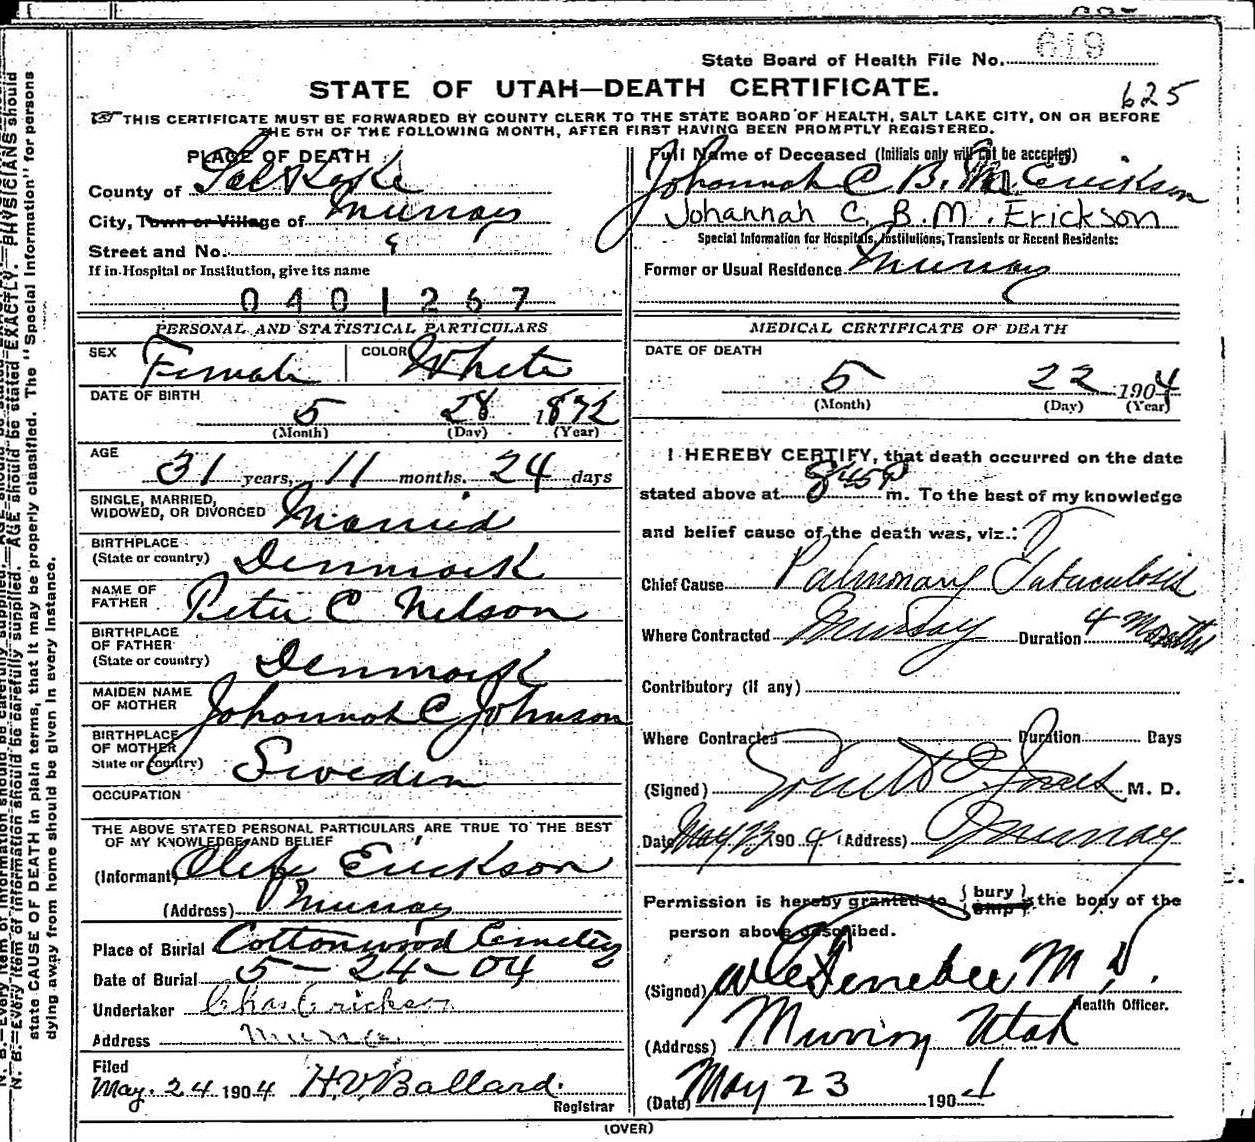 State Board of Health File No. 619
STATE OF UTAH—DEATH CERTIFICATE.
625
THIS CERTIFICATE MUST BE FORWARDED BY COUNTY CLERK TO THE STATE BOARD OF HEALTH, SALT LAKE CITY, ON OR BEFORE
THE 5TH OF THE FOLLOWING MONTH, AFTER FIRST HAVING BEEN PROMPTLY REGISTERED.
PLACE OF DEATH
County of Salt Lake
City, Town or Village of Murray
Street and No.
If in Hospital or Institution, give its name
0401267
PERSONAL AND STATISTICAL PARTICULARS
SEX Female COLOR White
DATE OF BIRTH
5 28 1872
(Month) (Day) (Year)
AGE
31 years, 11 months, 24 days
SINGLE, MARRIED,
WIDOWED, OR DIVORCED Married
BIRTHPLACE
(State or country) Denmark
NAME OF
FATHER Peter C Nelson
BIRTHPLACE
OF FATHER
(State or country) Denmark
MAIDEN NAME
OF MOTHER Johannah C Johnson
BIRTHPLACE
OF MOTHER
State or country) Sweden
OCCUPATION
THE ABOVE STATED PERSONAL PARTICULARS ARE TRUE TO THE BEST
OF MY KNOWLEDGE AND BELIEF
(Informant) Erickson
(Address) Murray
Place of Burial Cottonwood Cemetery
Date of Burial 5-24-04
Undertaker Chas Erickson
Address Murray
Filed
May. 24 1904 H.V. Ballard.
Registrar
Full Name of Deceased (Initials only will not be accepted)
Johannah C B. M. Erickson
Johannah C. B. M. Erickson
Special Information for Hospitals, Institutions, Transients or Recent Residents:
Former or Usual Residence Murray
MEDICAL CERTIFICATE OF DEATH
DATE OF DEATH
5 22 1904
(Month) (Day) (Year)
I HEREBY CERTIFY, that death occurred on the date
stated above at 845P m. To the best of my knowledge
and belief cause of the death was, viz.:
Chief Cause Pulmonary Tuberculosis
Where Contracted Murray Duration 4 Months
Contributory (if any)
Where Contracted Duration Days
(Signed) Jones M. D.
Date May 23 1904 (Address) Murray
Permission is hereby granted to { bury / ship } the body of the
person above described.
(Signed) M D.
Health Officer.
(Address) Murray Utah
(Date) May 23 1904
(OVER)
N. B.—Every item of information should be carefully supplied. AGE should be stated EXACTLY. PHYSICIANS should
state CAUSE OF DEATH in plain terms, that it may be properly classified. The "Special Information" for persons
dying away from home should be given in every instance.